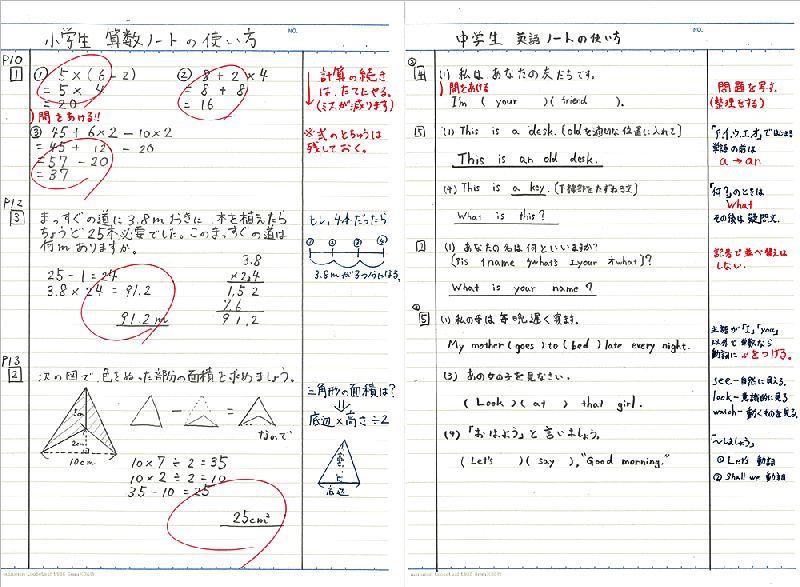 小学生 算数ノートの使い方
NO.
P10
1
① 5×(6-2)
= 5 × 4
= 20
② 8+2×4
= 8+8
= 16
)間をあける!!
③ 45+6×2-10×2
= 45+12-20
= 57-20
= 37
計算の続き
は、たてにやる。
(ミスが減ります)
※式のとちゅうは
残しておく。
P12
3
まっすぐの道に3.8mおきに、木を植えたら
ちょうど25本必要でした。このまっすぐの道は
何mありますか。
25-1=24
3.8×24=91.2
91.2m
3.8
×2,4
1,52
7.6
91,2
もし、4本だったら
① ② ③ ④
3.8mが3つ分になる。
P13
2
次の図で、色をぬった部分の面積を求めましょう。
2cm
10cm
なので
10×7÷2=35
10×2÷2=10
35-10=25
25cm²
三角形の面積は?
底辺×高さ÷2
高さ
底辺
中学生 英語ノートの使い方
NO.
4
(1) 私は、あなたの友だちです。
)間をあける
I'm ( your )( friend ).
問題を写す。
(整理をする)
5
(1) This is a desk. (oldを適切な位置に入れて)
This is an old desk.
「ア,イ,ウ,エ,オ」で始まる
単語の前は
a → an
(4) This is a key. (下線部をたずねる文)
What is this?
「何?」のときは
What
その後は疑問文。
(1) あなたの名は何といいますか?
(ア is イ name ウ what エ your オ what)?
What is your name?
記号で並べ替えは
しない。
5
(1) 私の母は毎晩遅く寝ます。
My mother (goes) to (bed) late every night.
主語が「I」「you」
以外で単数なら
動詞にsをつける。
(3) あの女の子を見なさい。
( Look )( at ) that girl.
see-自然に見える。
look-意識的に見る
watch-動くものを見る。
(4) 「おはよう」と言いましょう。
( Let's )( say ), "Good morning."
「~しましょう」
① Let's 動詞
② Shall we 動詞